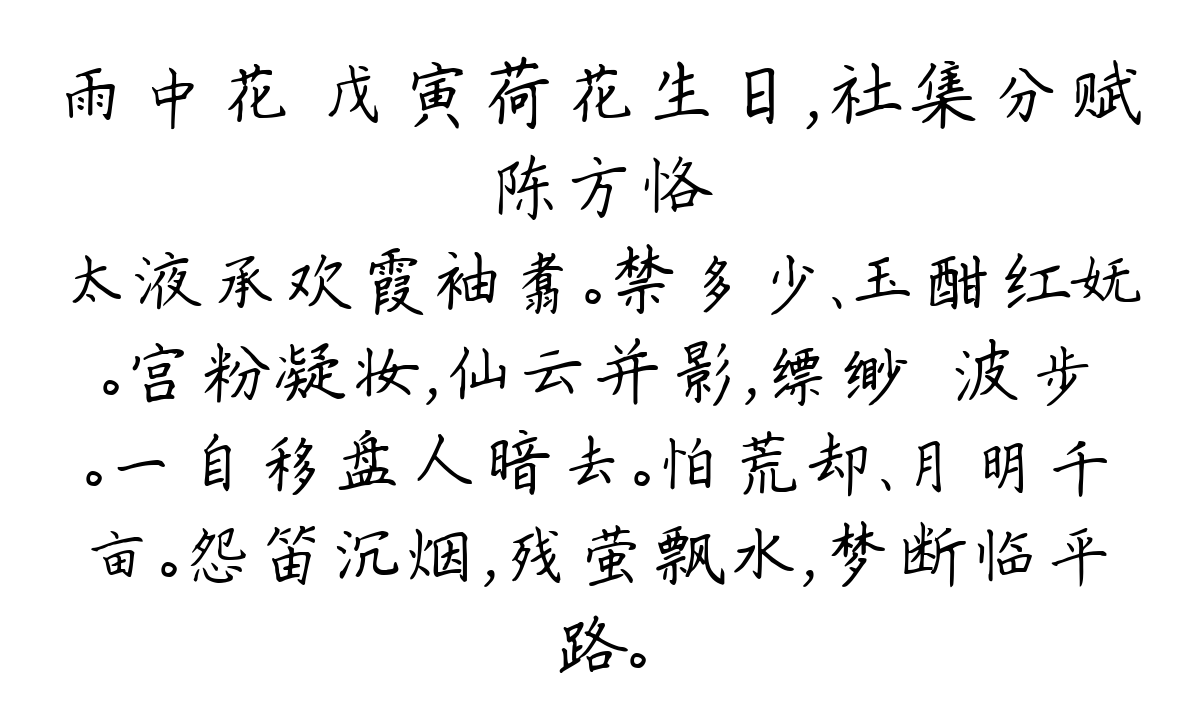 雨中花 戊寅荷花生日,社集分赋
陈方恪
太液承欢霞袖翥。禁多少、玉酣红妩
。宫粉凝妆,仙云并影,缥缈 波步
。一自移盘人暗去。怕荒却、月明千
亩。怨笛沉烟,残萤飘水,梦断临平
路。